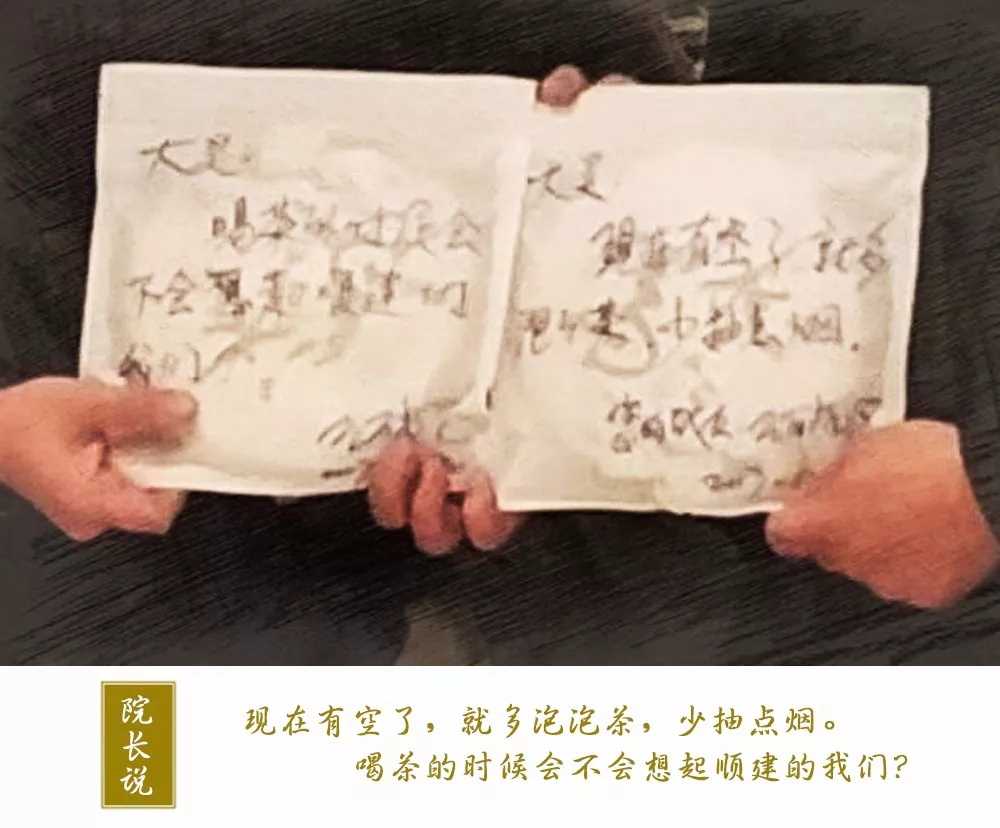 喝茶的时候会
不会想起顺建的
我们
现在有空了就多
泡泡茶，少抽点烟.
院长说
现在有空了，就多泡泡茶，少抽点烟。
喝茶的时候会不会想起顺建的我们？